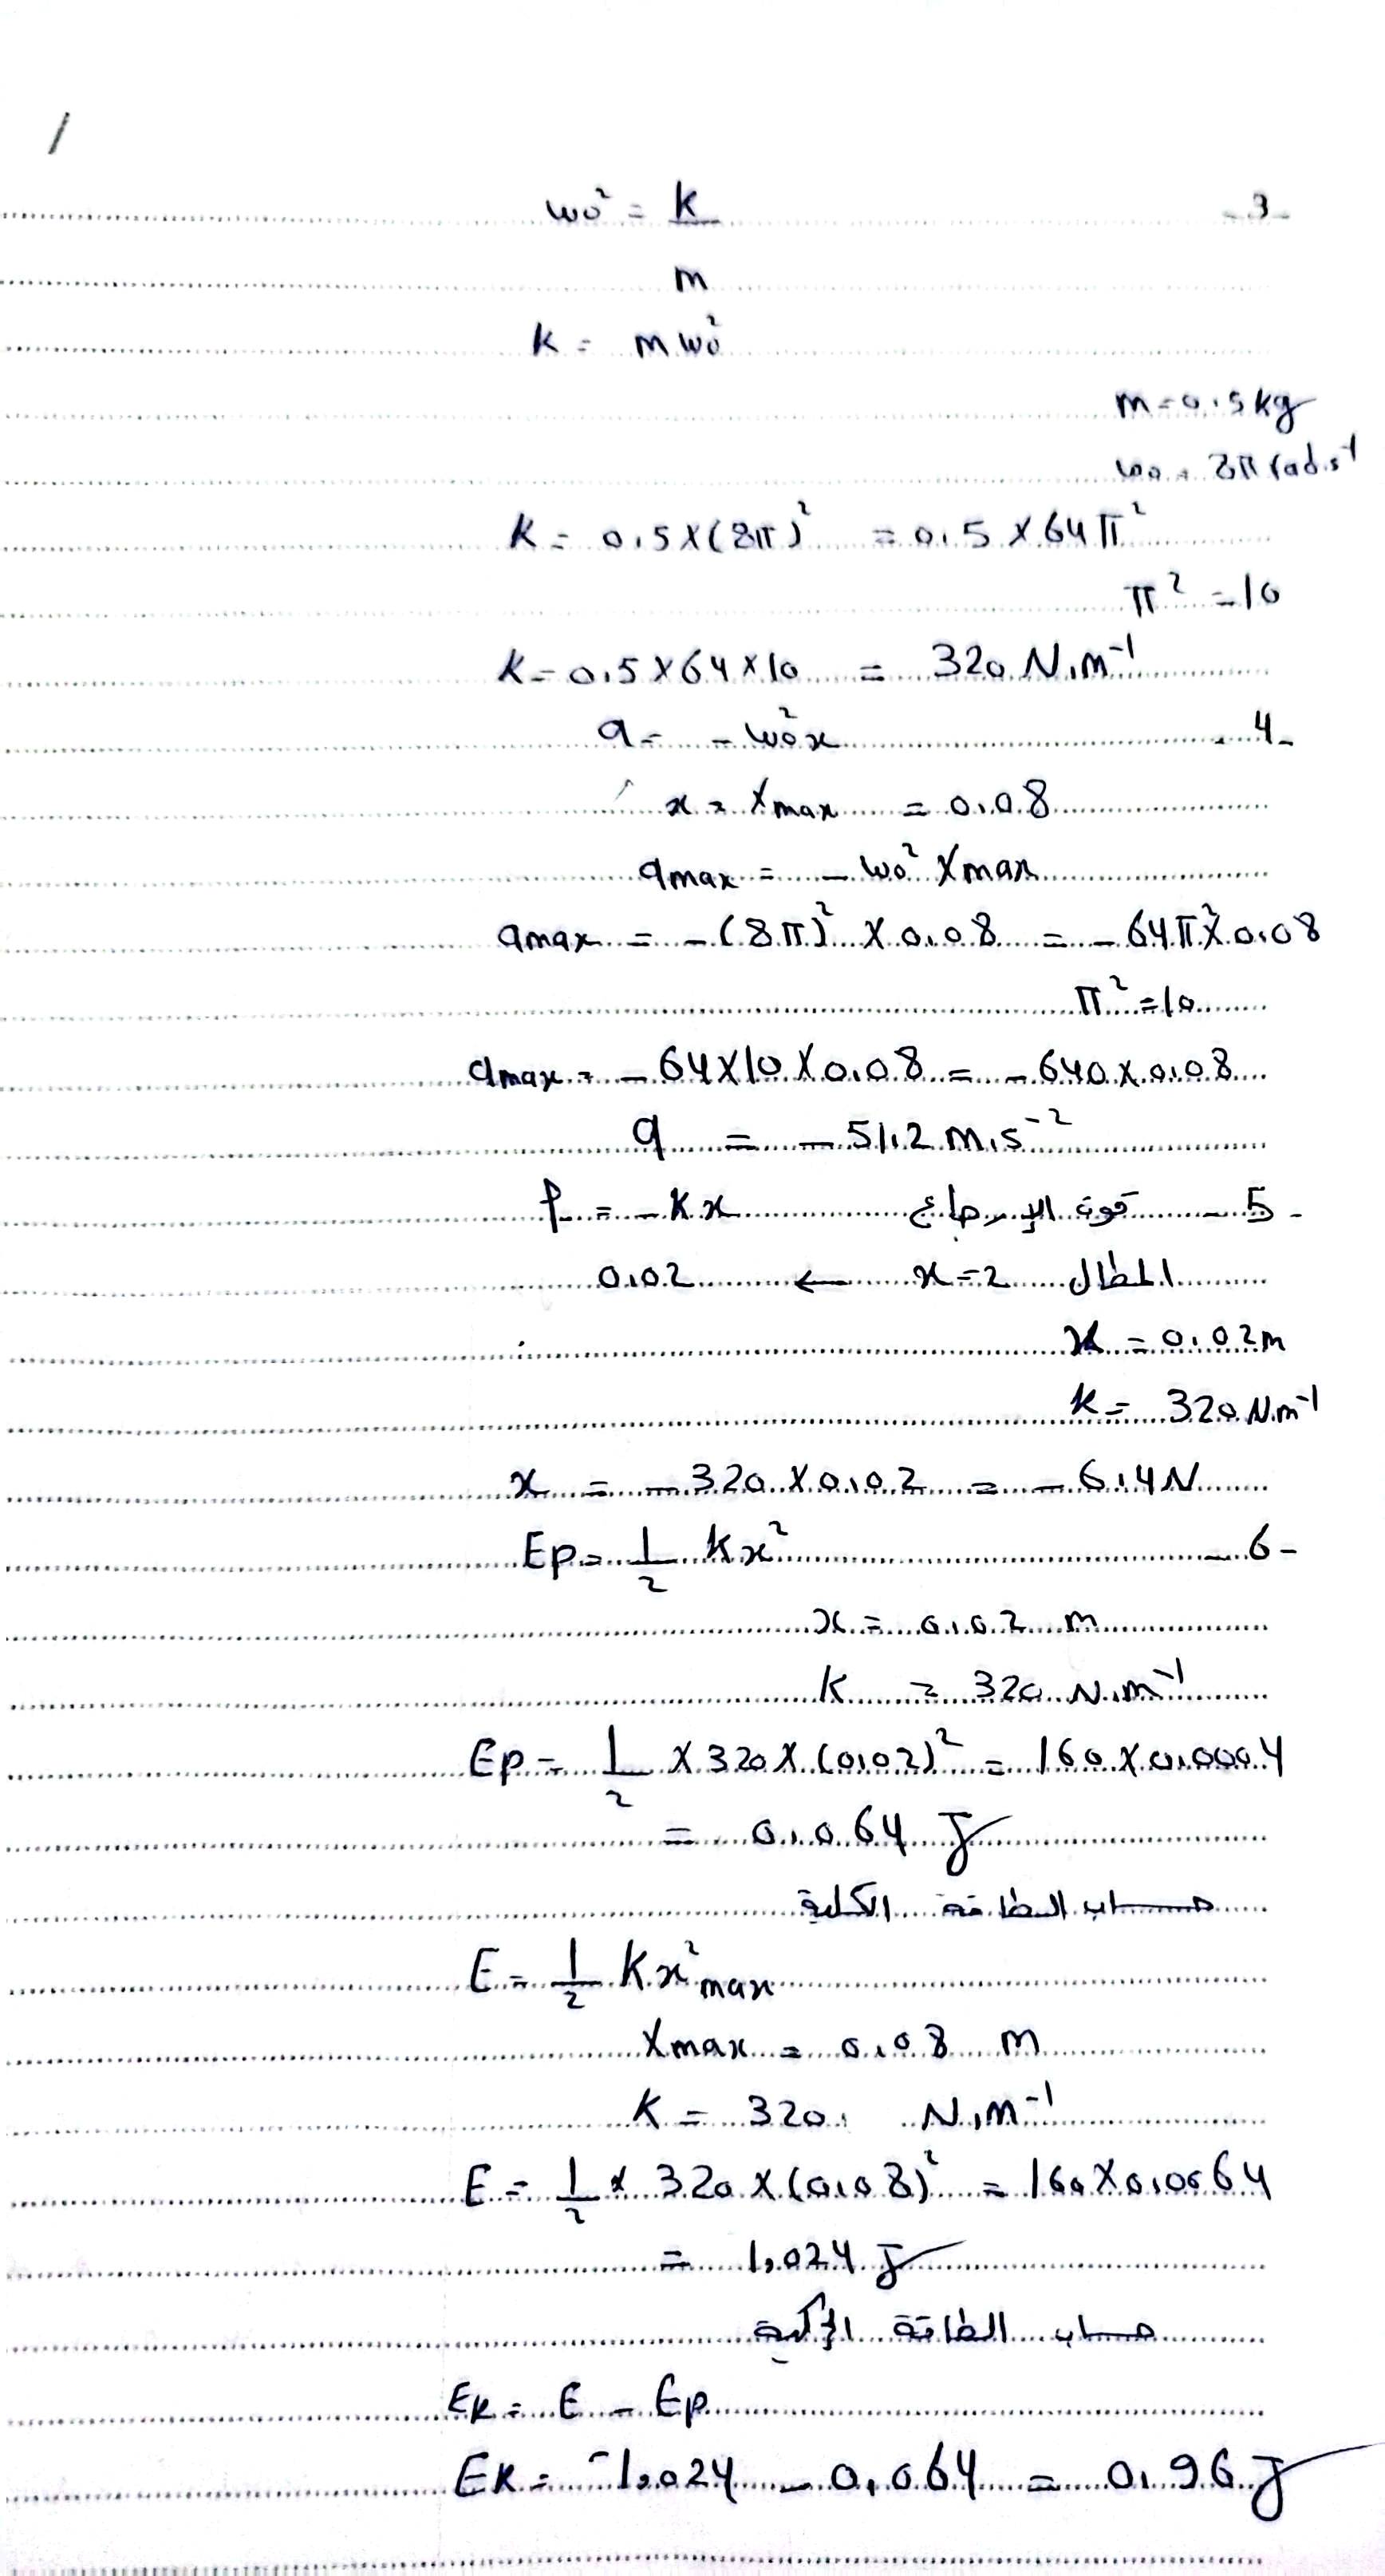 3- ω₀² = k/m
k = mω₀²
m = 0,5 kg
ω₀ = 8π rad.s⁻¹
k = 0,5 × (8π)² = 0,5 × 64π²
π² = 10
k = 0,5 × 64 × 10 = 320 N.m⁻¹
4- a = -ω₀²x
x = Xmax = 0,08
amax = -ω₀² Xmax
amax = -(8π)² × 0,08 = -64π² × 0,08
π² = 10
amax = -64 × 10 × 0,08 = -640 × 0,08
a = -51,2 m.s⁻²
5- قوة الإرجاع f = -kx
المطال x = 2 ← 0,02
x = 0,02 m
k = 320 N.m⁻¹
x = -320 × 0,02 = -6,4 N
6- Ep = 1/2 kx²
x = 0,02 m
k = 320 N.m⁻¹
Ep = 1/2 × 320 × (0,02)² = 160 × 0,0004
= 0,064 J
حساب الطاقة الكلية
E = 1/2 kx²max
Xmax = 0,08 m
k = 320 N.m⁻¹
E = 1/2 × 320 × (0,08)² = 160 × 0,0064
= 1,024 J
حساب الطاقة الحركية
Ek = E - Ep
Ek = 1,024 - 0,064 = 0,96 J